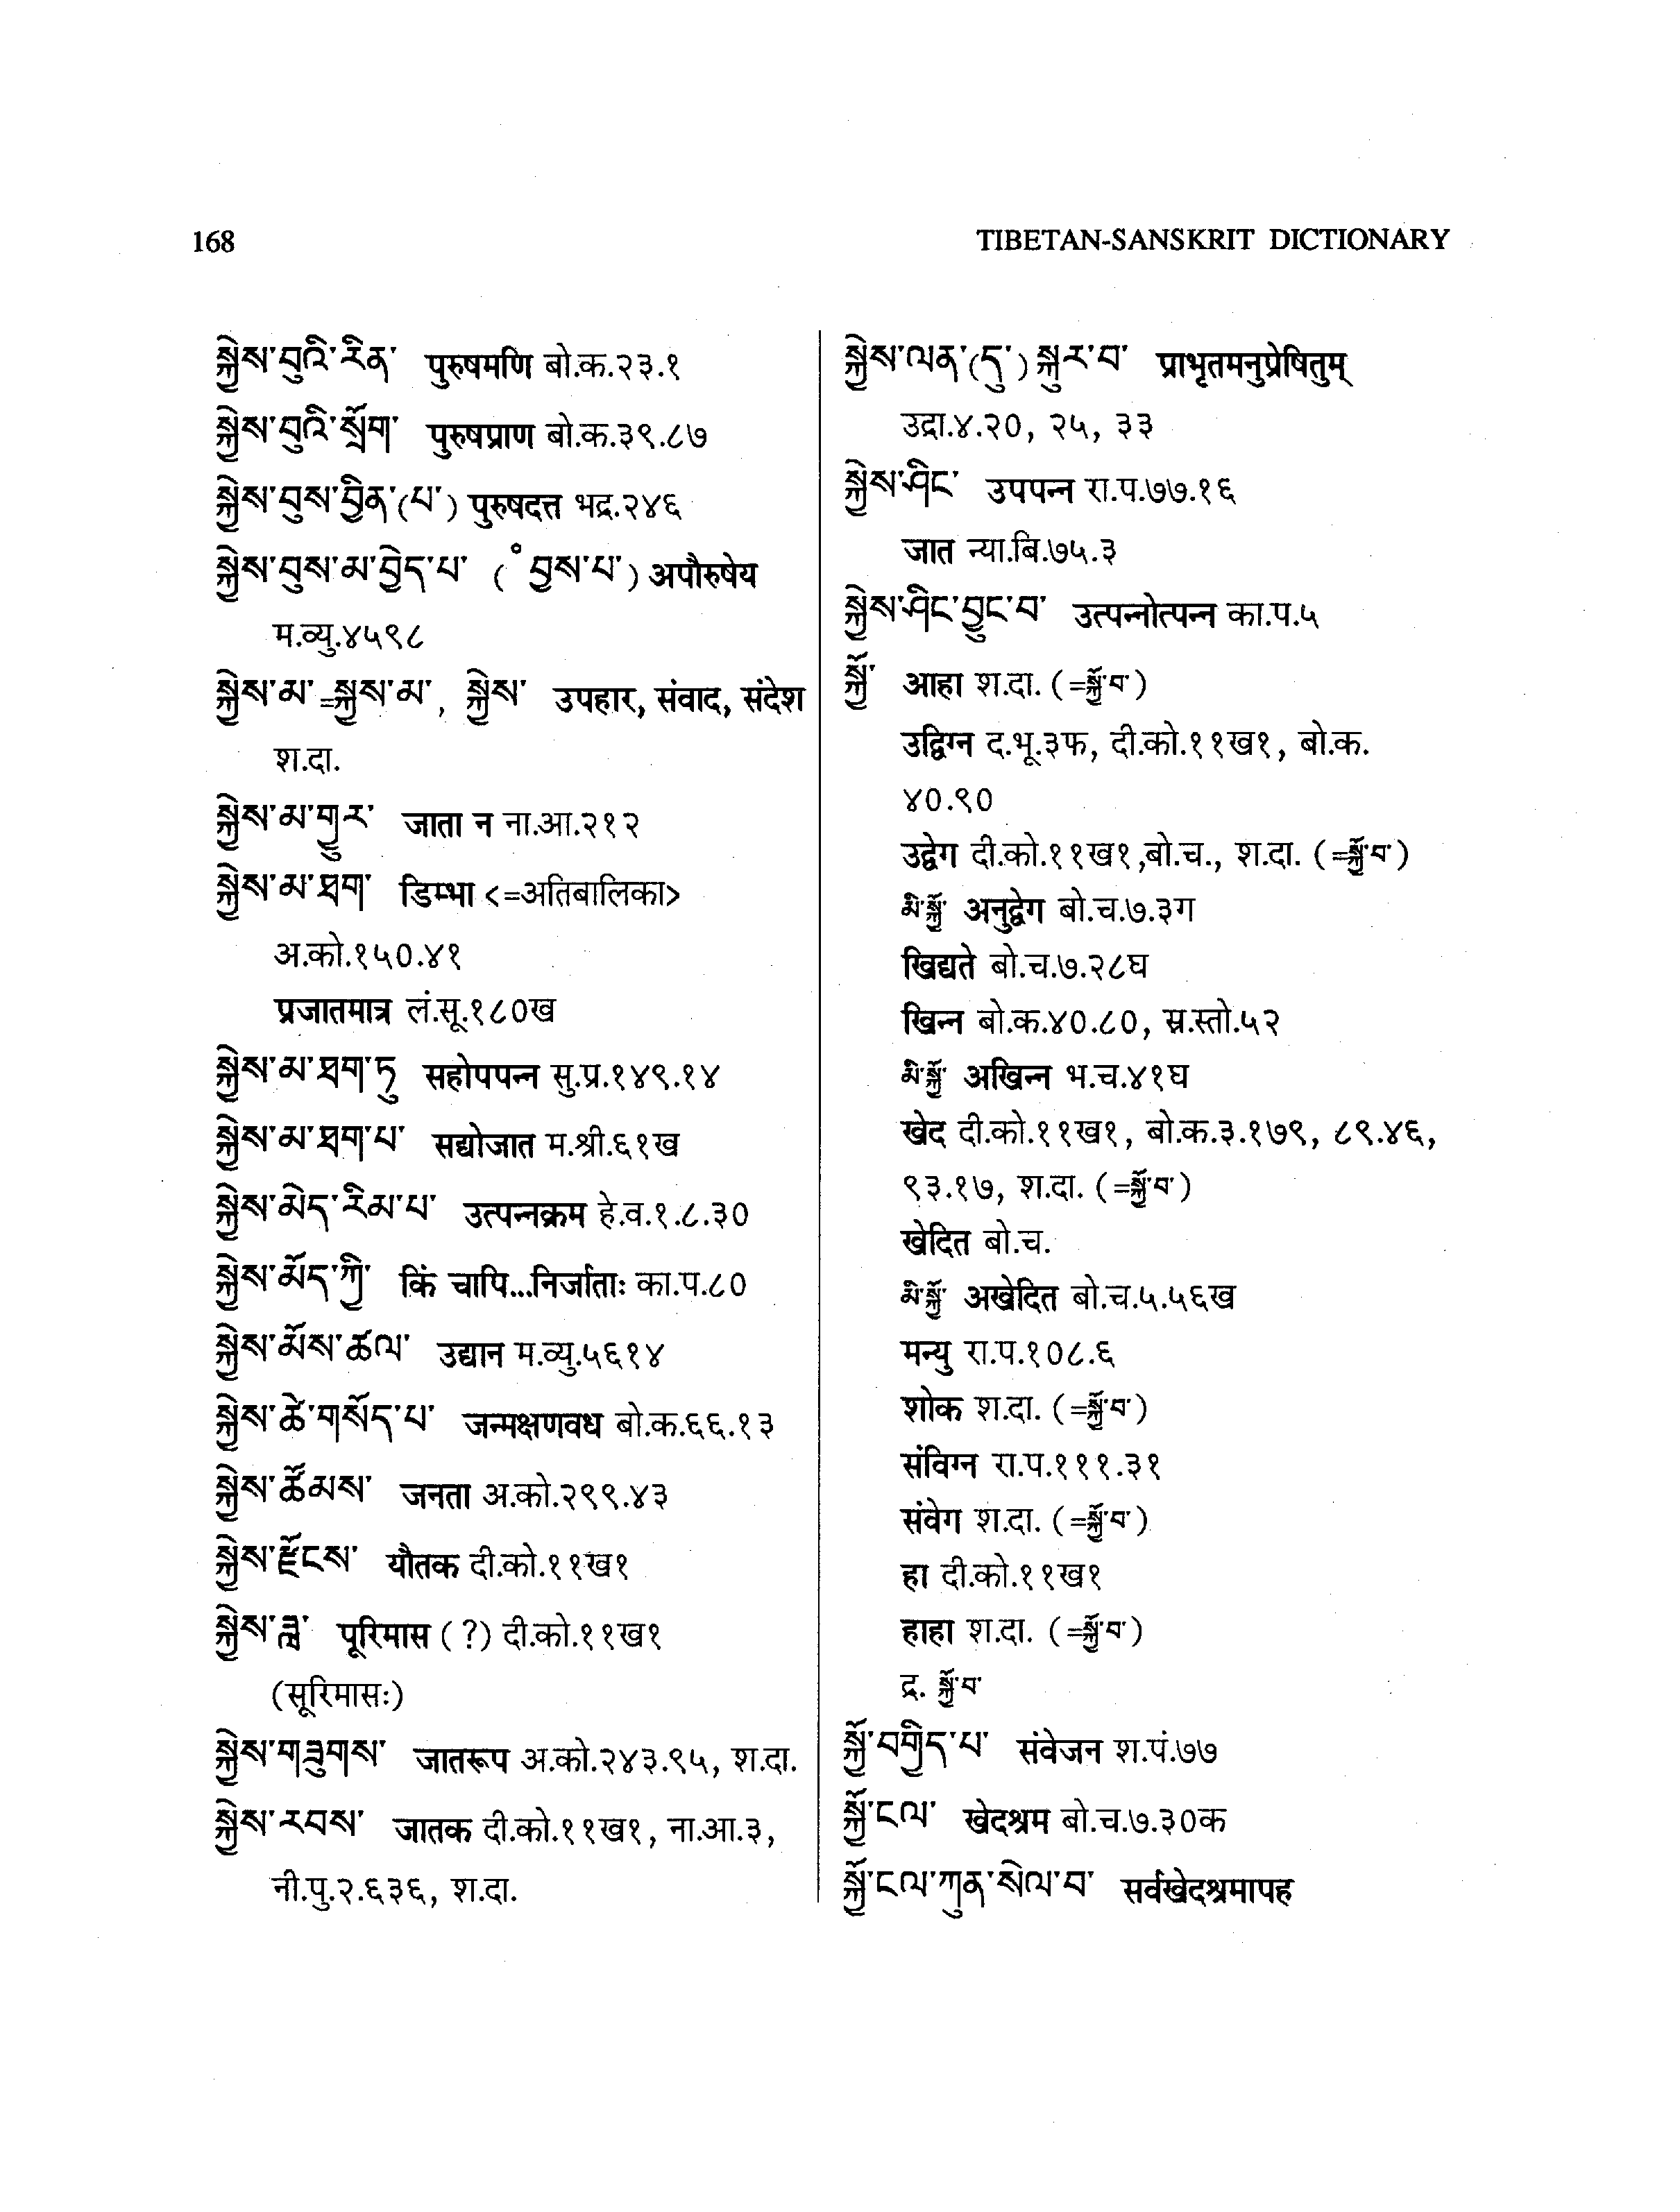 168
TIBETAN-SANSKRIT DICTIONARY
སྐྱེས་བུའི་རིན་ पुरुषमणि बो.क.२३.१
སྐྱེས་བུའི་སྲོག་ पुरुषप्राण बो.क.३९.८७
སྐྱེས་བུས་བྱིན་(པ་) पुरुषदत्त भद्र.२४६
སྐྱེས་བུས་མ་བྱེད་པ་ (॰བྱས་པ་) अपौरुषेय
म.व्यु.४५९८
སྐྱེས་མ་=སྐྱས་མ་, སྐྱེས་ उपहार, संवाद, संदेश
श.दा.
སྐྱེས་མ་གྱུར་ जाता न ना.आ.२१२
སྐྱེས་མ་ཐག་ डिम्भा <=अतिबालिका>
अ.को.१५०.४१
प्रजातमात्र लं.सू.१८०ख
སྐྱེས་མ་ཐག་ཏུ सहोपपन्न सु.प्र.१४९.१४
སྐྱེས་མ་ཐག་པ་ सद्योजात म.श्री.६१ख
སྐྱེས་མེད་རིམ་པ་ उत्पन्नक्रम हे.व.१.८.३०
སྐྱེས་མོད་ཀྱི་ किं चापि...निर्जाताः का.प.८०
སྐྱེས་མོས་ཚལ་ उद्यान म.व्यु.५६१४
སྐྱེས་ཚེ་གསོད་པ་ जन्मक्षणवध बो.क.६६.१३
སྐྱེས་ཚོམས་ जनता अ.को.२९९.४३
སྐྱེས་རྫོངས་ यौतक दी.को.११ख१
སྐྱེས་ཟླ་ पूरिमास (?) दी.को.११ख१
(सूरिमासः)
སྐྱེས་གཟུགས་ जातरूप अ.को.२४३.९५, श.दा.
སྐྱེས་རབས་ जातक दी.को.११ख१, ना.आ.३,
नी.पु.२.६३६, श.दा.
སྐྱེས་ལན་(དུ་) སྐུར་བ་ प्राभृतमनुप्रेषितुम्
उद्रा.४.२०, २५, ३३
སྐྱེས་ཤིང་ उपपन्न रा.प.७७.१६
जात न्या.बि.७५.३
སྐྱེས་ཤིང་བྱུང་བ་ उत्पन्नोत्पन्न का.प.५
སྐྱོ་ आहा श.दा. (=སྐྱོ་བ་)
उद्विग्न द.भू.३फ, दी.को.११ख१, बो.क.
४०.९०
उद्वेग दी.को.११ख१,बो.च., श.दा. (=སྐྱོ་བ་)
མི་སྐྱོ་ अनुद्वेग बो.च.७.३ग
खिद्यते बो.च.७.२८घ
खिन्न बो.क.४०.८०, स्र.स्तो.५२
མི་སྐྱོ་ अखिन्न भ.च.४१घ
खेद दी.को.११ख१, बो.क.३.१७९, ८९.४६,
९३.१७, श.दा. (=སྐྱོ་བ་)
खेदित बो.च.
མི་སྐྱོ་ अखेदित बो.च.५.५६ख
मन्यु रा.प.१०८.६
शोक श.दा. (=སྐྱོ་བ་)
संविग्न रा.प.१११.३१
संवेग श.दा. (=སྐྱོ་བ་)
हा दी.को.११ख१
हाहा श.दा. (=སྐྱོ་བ་)
द्र. སྐྱོ་བ་
སྐྱོ་བགྱིད་པ་ संवेजन श.पं.७७
སྐྱོ་ངལ་ खेदश्रम बो.च.७.३०क
སྐྱོ་ངལ་ཀུན་སེལ་བ་ सर्वखेदश्रमापह